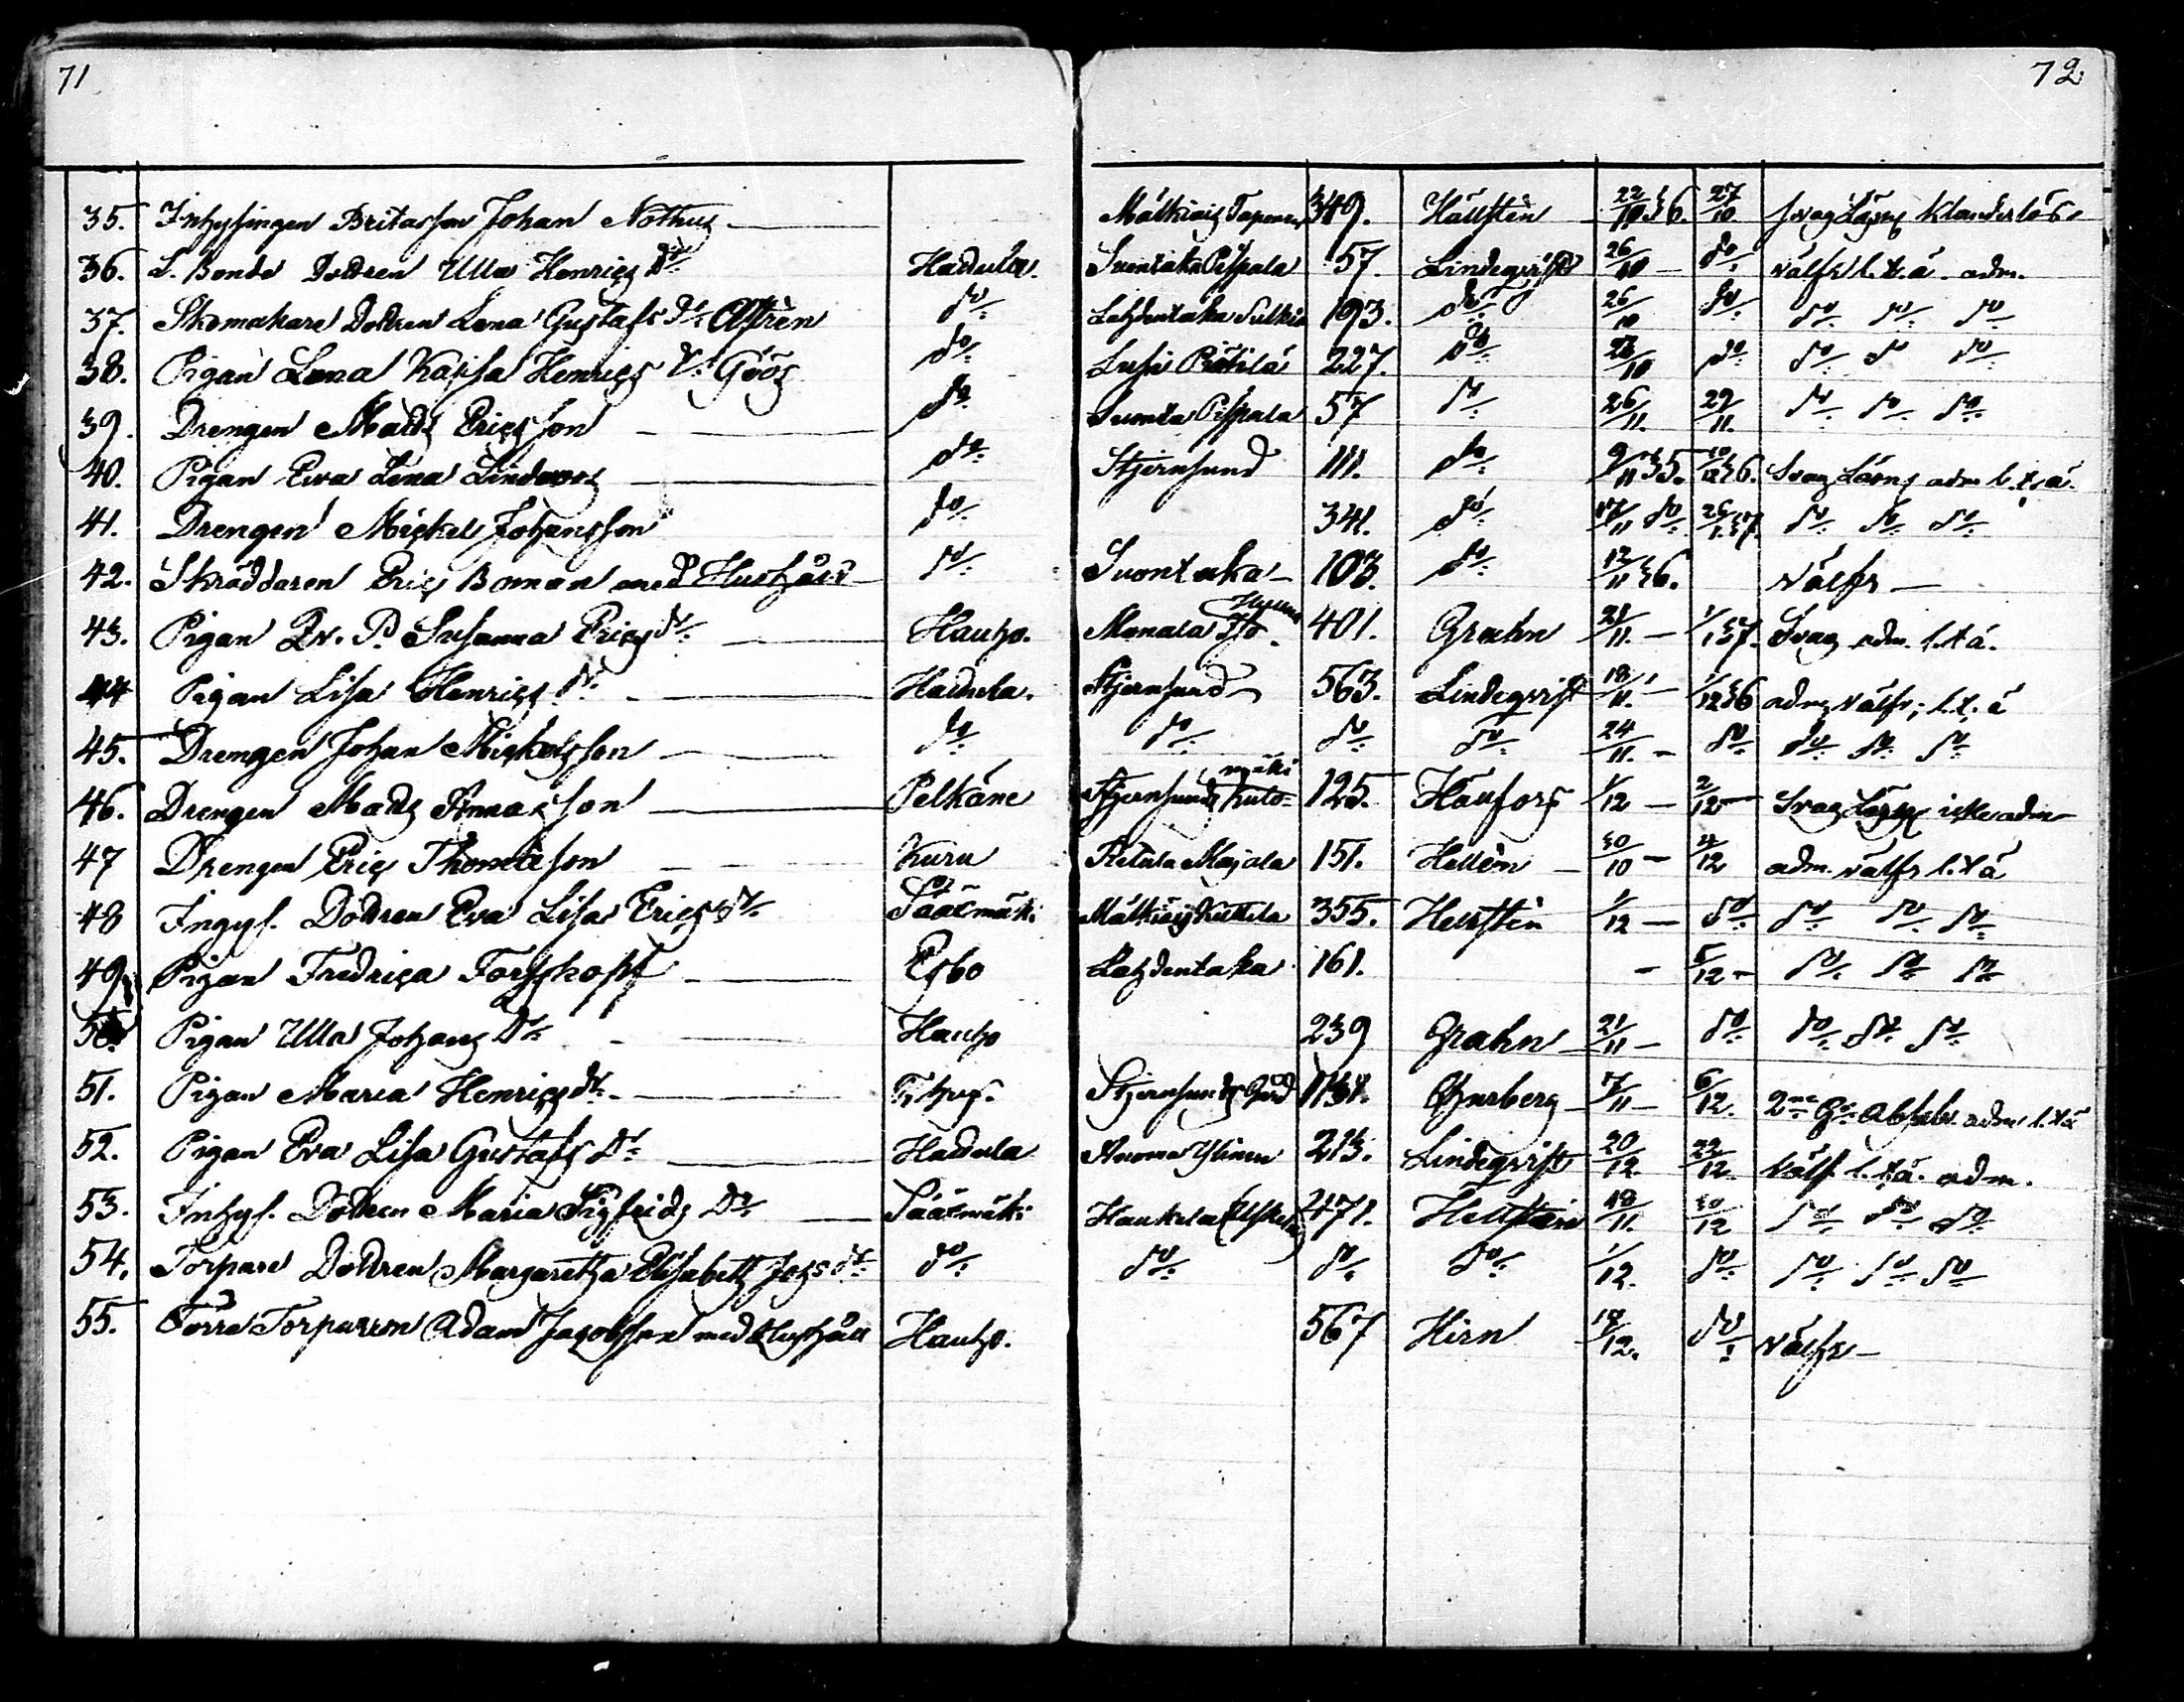 71
72
35. Inhysingen Britasson Johan Nothus Mälkiäis 349. Hällsten 22/10 36. 27/10. svag Läsn klanderlös
36. L. Bonde Dottren Ulla Henrics dr. Hattula. Suontaka Pispala 57. Lindeqvist 26/10 do välfr l. k. ä. adm.
37. Skomakare Dottren Lena Gustafs dr. Astrén do Lahdentaka 193. do 26/10 do do do do
38. Pigan Lena Kajsa Henrics dr. Göös do Lusi Pietilä 227. do 26/10 do do do do
39. Drengen Matts Ericsson do Suontaka Pispala 57 do 26/11. 29/11. do do do
40. Pigan Eva Lena do Stjernsund 111. do 9/11 35. Svag Läsn adm l. k. ä.
41. Drengen Mickel Johansson do 341. do 17/11 do 26/1 37. do do do
42. Skräddaren Eric Boman med Hushåll do Suontaka 103. do 12/11 36. välfr
43. Pigan Qv. P. Susanna Erics dr. Hauho. Monala 401. Grahn 21/11. 1/1 37. Svag adm. l. k. ä.
44 Pigan Lisa Henrics dr. Hattula. Stjernsund 563. Lindeqvist 18/11. 1/12 36 adm, välfr; l. k. ä
45. Drengen Johan Mickelsson do do do do 24/11. do do do do
46. Drengen Matts Annasson Pelkäne Stjernsunds Kulomäki 125. Häufors 1/12 2/12 Svag Läsn icke adm
47 Drengen Eric Thomasson Kuru Retula Majala 151. Hellén 30/10 4/12 adm. välfr l. k. ä
48 Inhys. Dottren Eva Lisa Erics dr. Sääxmäki Mälkiäis Kuttila 355. Hellstén 1/12 do do do do
49. Pigan Fredrica Esbo Lahdentaka 161. 5/12 do do do
50. Pigan Ulla Johans dr. Hauho 239 Grahn 21/11 do do do do
51. Pigan Maria Henrics dr. Stjernsunds Gård 17/11 6/12. 2ne Gr. Absolv. adm l. k. ä
52. Pigan Eva Lisa Gustafs dr. Hattula 213. Lindeqvist 20/12. 22/12. välf l. k. ä. adm.
53. Inhys. Dottren Maria Sigfrids dr. Sääxmäki 471. 18/11. 30/12 do do do
54. Torpare Dottren Margaretha Elisabeth Johs dr. do do do do 1/12. do do do do
55. Förre Torparen Adam Jacobsson med Hushåll Hauho. 567 Hirn 18/12. do välfr